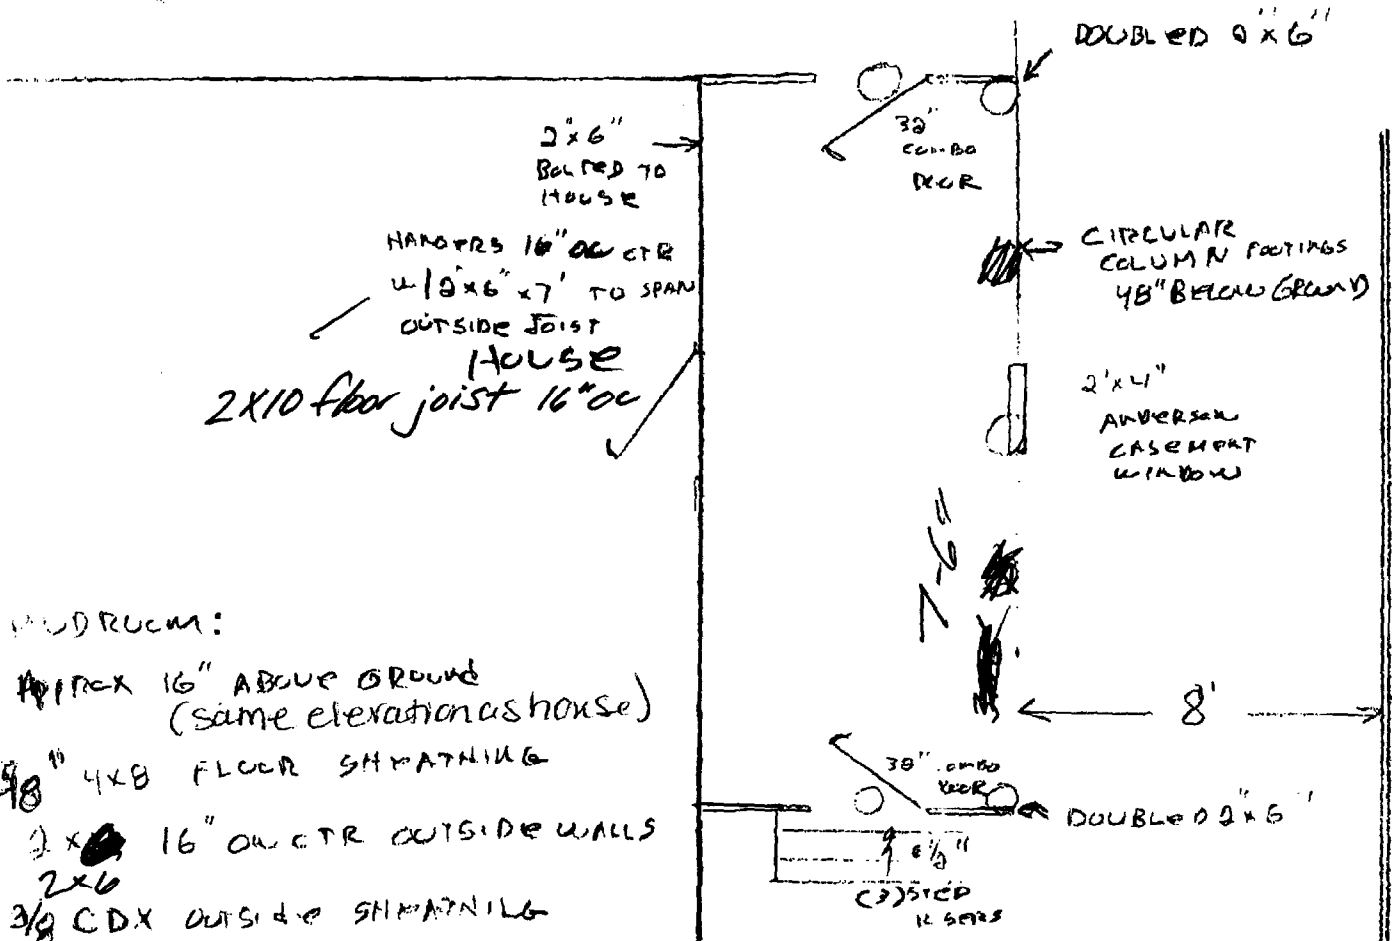 DOUBLED 2"x6"
2"x6"
BOLTED TO
HOUSE
32"
COMBO
DOOR
HANGERS 16" ON CTR
W/2"x6"x7' TO SPAN
OUTSIDE JOIST
HOUSE
2X10 floor joist 16" oc
CIRCULAR
COLUMN FOOTINGS
48" BELOW GROUND
2'x4"
ANDERSEN
CASEMENT
WINDOW
7-6"
MUDROOM:
APPROX 16" ABOVE GROUND
(same elevation as house)
5/8" 4x8 FLOOR SHEATHING
2x 16" ON CTR OUTSIDE WALLS
2x6
3/8 CDX OUTSIDE SHEATHING
8'
COMBO
DOOR
DOUBLED 2"x6"
6 1/2"
(3) STEP
RISERS